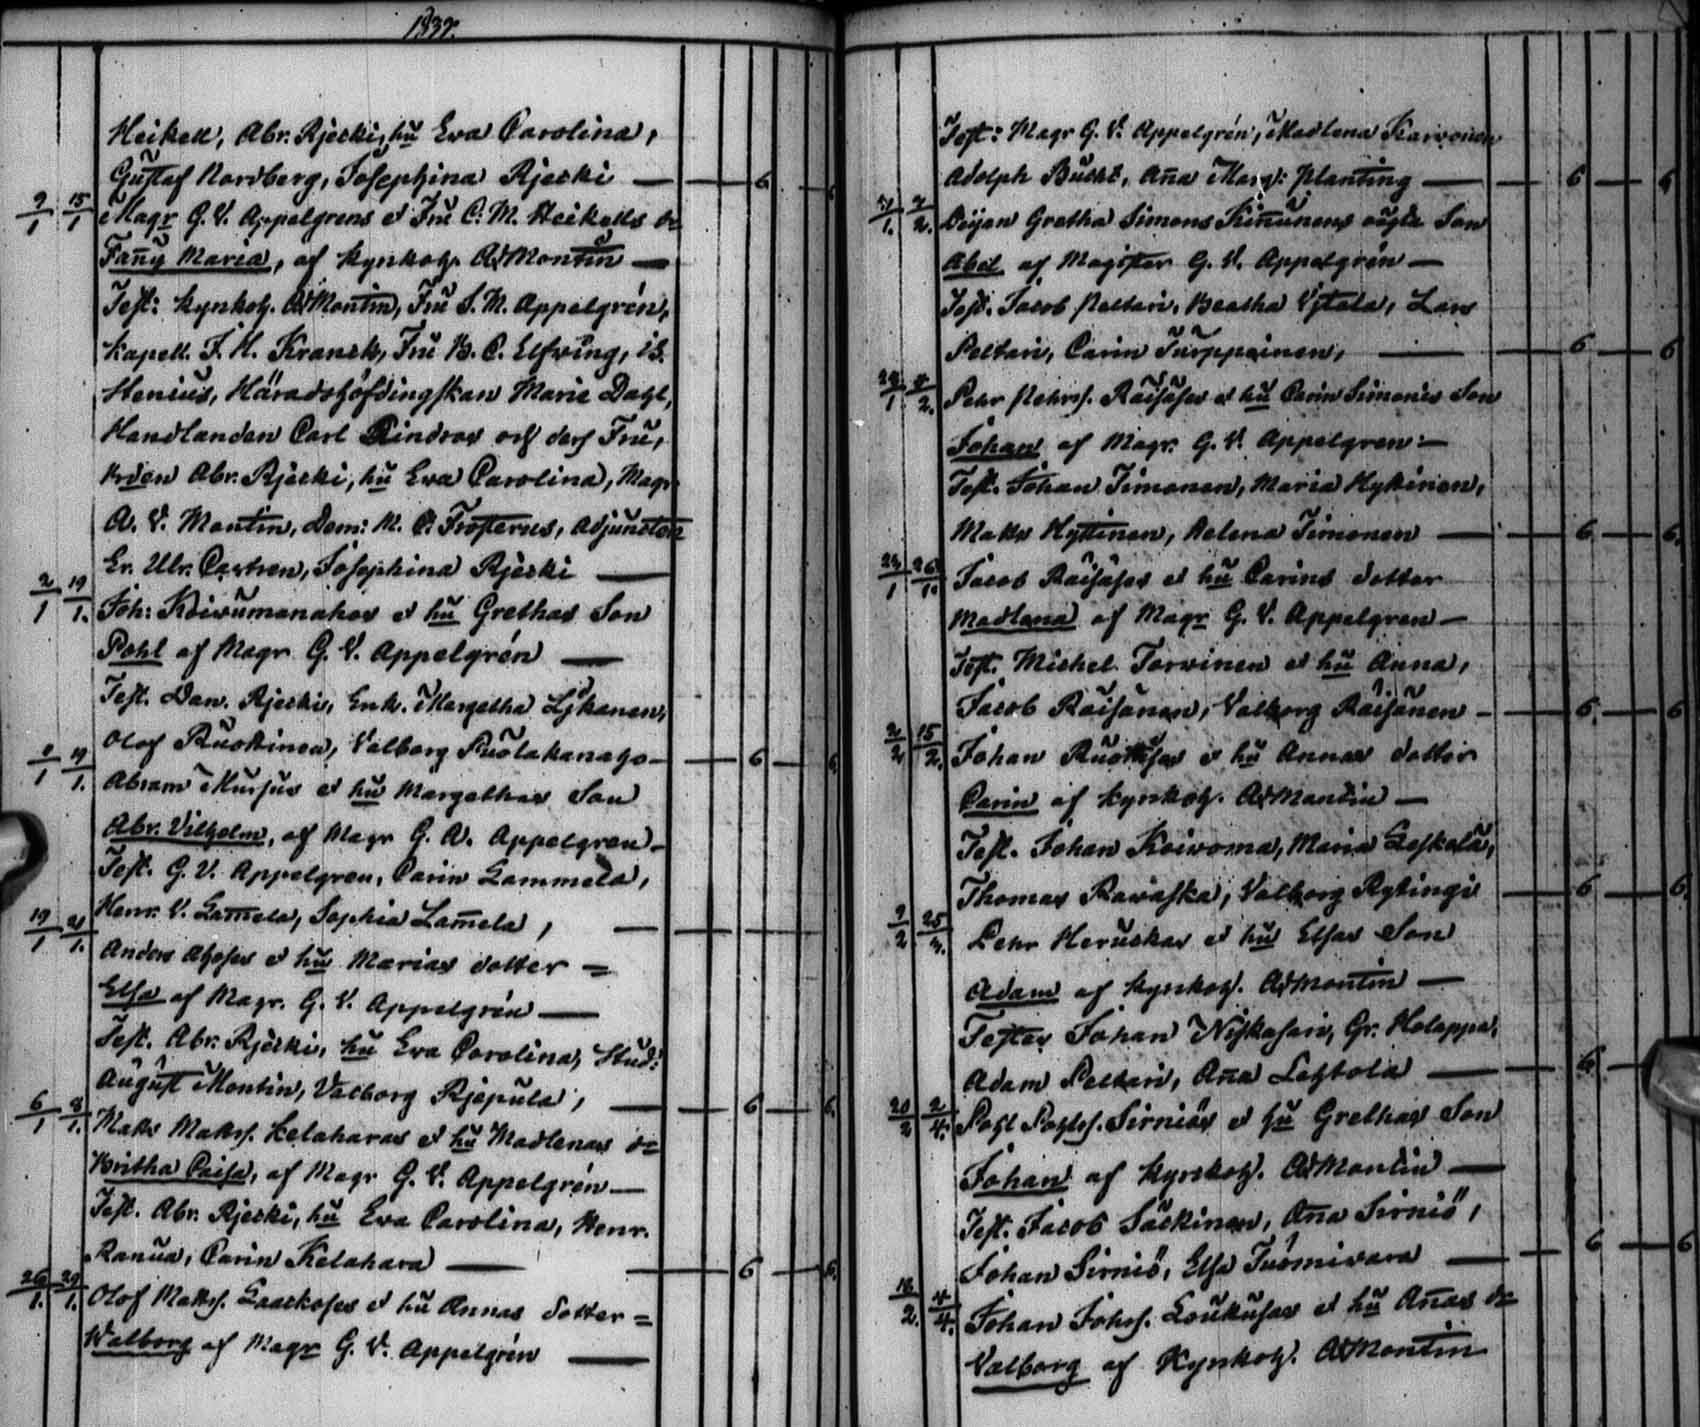 1837.
Heikell, Abr. Rjecki, hu Eva Carolina,
Gustaf Nordberg, Josephina Rjecki — 6
9/1 15/1 Magr G. V. Appelgrens et Fru C. M. Heikells dr
Fañy Maria, af kyrkoh. Ad Montin —
Test: kyrkoh. Ad Montin, Fru S. M. Appelgrén,
Kapell. F. H. Kranck, Fru B. C. Elfving, iS.
Henius, Häradshöfdingskan Marie Dahl,
Handlanden Carl och dess Fru,
Abr. Rjecki, hu Eva Carolina, Magr
A. V. Montin, Dem: M. C. Frosterus, Adjuncten
Er. Ulr. Castren, Josephina Rjecki —
2/1 19/1. Joh: Koivumanahos et hu Grethas Son
Pohl af Magr G. V. Appelgrén —
Test. Dan. Rjecki, Enk. Margetha Lykanen,
Olof Ruokinen, Valborg — 6 6
8/1 19/1. Abram Mursus et hu Margethas Son
Abr. Vilhelm, af Magr G. V. Appelgren —
Test. G. V. Appelgren, Carin Lammela,
Henr. V. Lam̄ela, Sophia Lam̄ela, —
19/1 21/1. Anders et hu Marias dotter =
Elsa af Magr. G. V. Appelgrén —
Test. Abr. Rjecki, hu Eva Carolina, Stud:
August Montin, Valborg Rjepula, — 6 6
6/1 8/1. Matts Matts. Kelaharas et hu Madlenas dr
Britha Caisa, af Magr G. V. Appelgrén —
Test. Abr. Rjecki, hu Eva Carolina, Henr.
Ranua, Carin Kelahara — 6 6
26/1. 29/1. Olof Matts. et hu Annas dotter =
Walborg af Magr G. V. Appelgrén —
Test: Magr G. V. Appelgrén, Madlena Karvonen
Adolph Bucht, Aña Marg: Planting — 6 6
Deijan Gretha Simons Kiñunens oägta Son
Abel af Magister G. V. Appelgrén —
Test. Jacob Peltari, Beatha Ylitalo, Lars
Peltari, Carin Turppainen, — 6 6
Pehr Pehrs. Räisäses et hu Carin Simonis Son
Johan af Magr. G. V. Appelgren —
Test. Johan Timonen, Maria Hyttinen,
Matts Hyttinen, Helena Timonen — 6 6
Jacob Räisäses et hu Carins dotter
Madlena af Magr G. V. Appelgren —
Test. Michel Torvinen et hu Anna,
Jacob Räisänen, Valborg Räisänen — 6 6
2/2 15/2. Johan et hu Annas dotter
Carin af kyrkoh. Ad Montin —
Test. Johan Koivoma, Maria Leskelä,
Thomas Ravaska, Valborg Rytingi — 6 6
9/2 Pehr Heruskas et hu Elsas Son
Adam af kyrkoh. Ad Montin —
Testes Johan Niskasari, Gr. Holappa,
Adam Peltari, Aña Lehtola — 6
20/2 2/4. Pohl Pohls. Sirniös et hu Grethas Son
Johan af kyrkoh. Ad Montin —
Test. Jacob Säckinen, Aña Sirniö,
Johan Sirniö, Elsa Tuomivara — 6 6
16/2. 4/4. Johan Johs. Loukusas et hu Añas dr
Valborg af Kyrkoh. Ad Montin